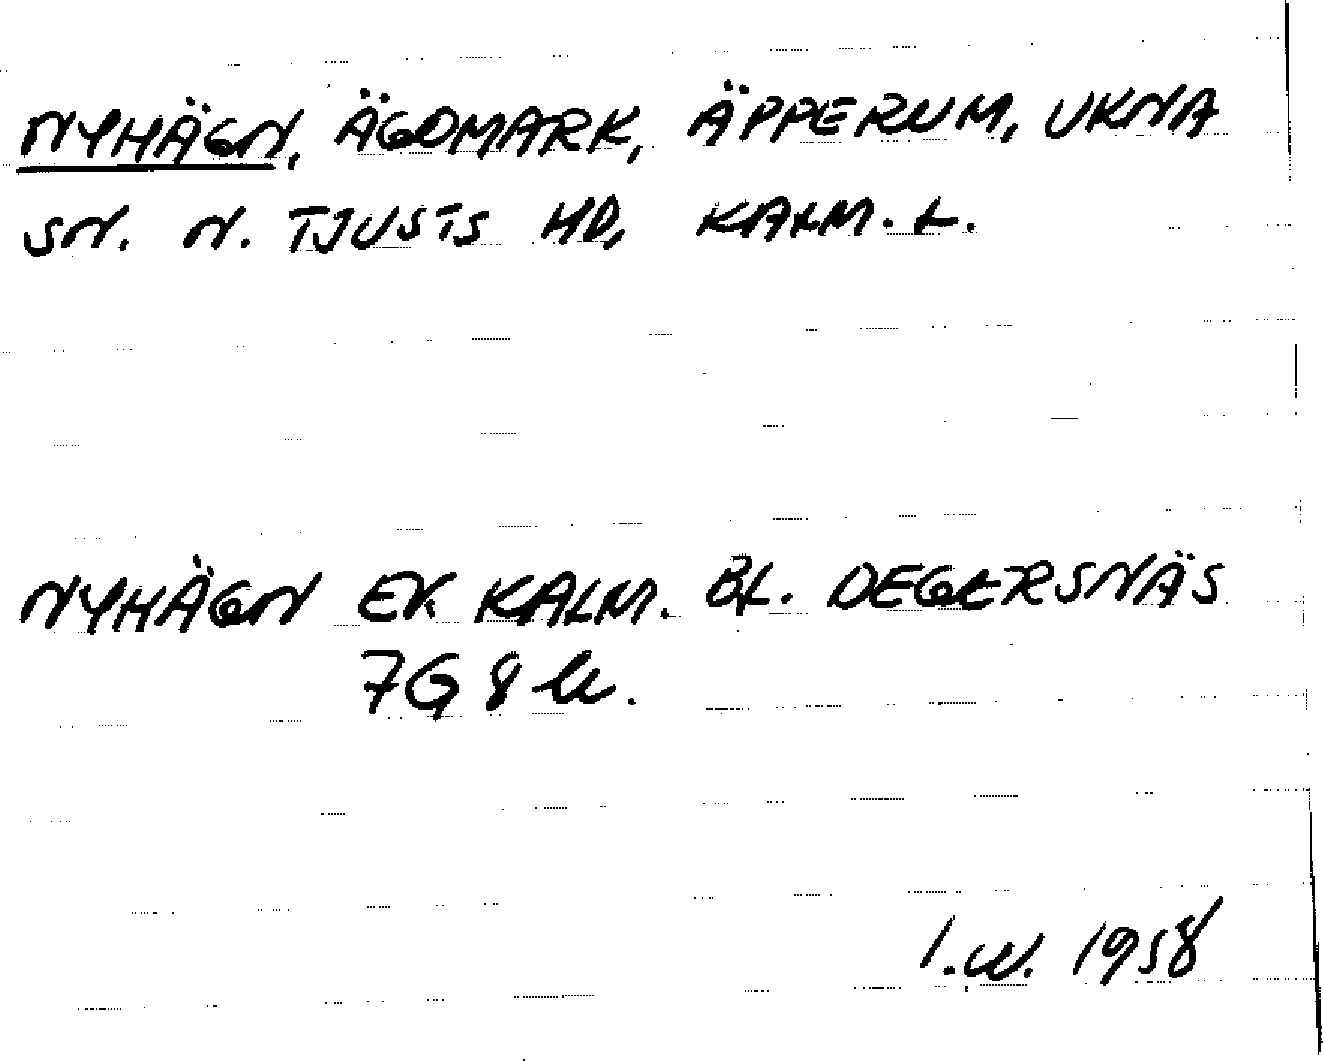 NYHÄGN, ÄGOMARK, ÄPPERUM, UKNA
SN. N. TJUSTS HD, KALM. L.
NYHÄGN EK KALM. BL. DEGERSNÄS
7G 8
I.W. 1958